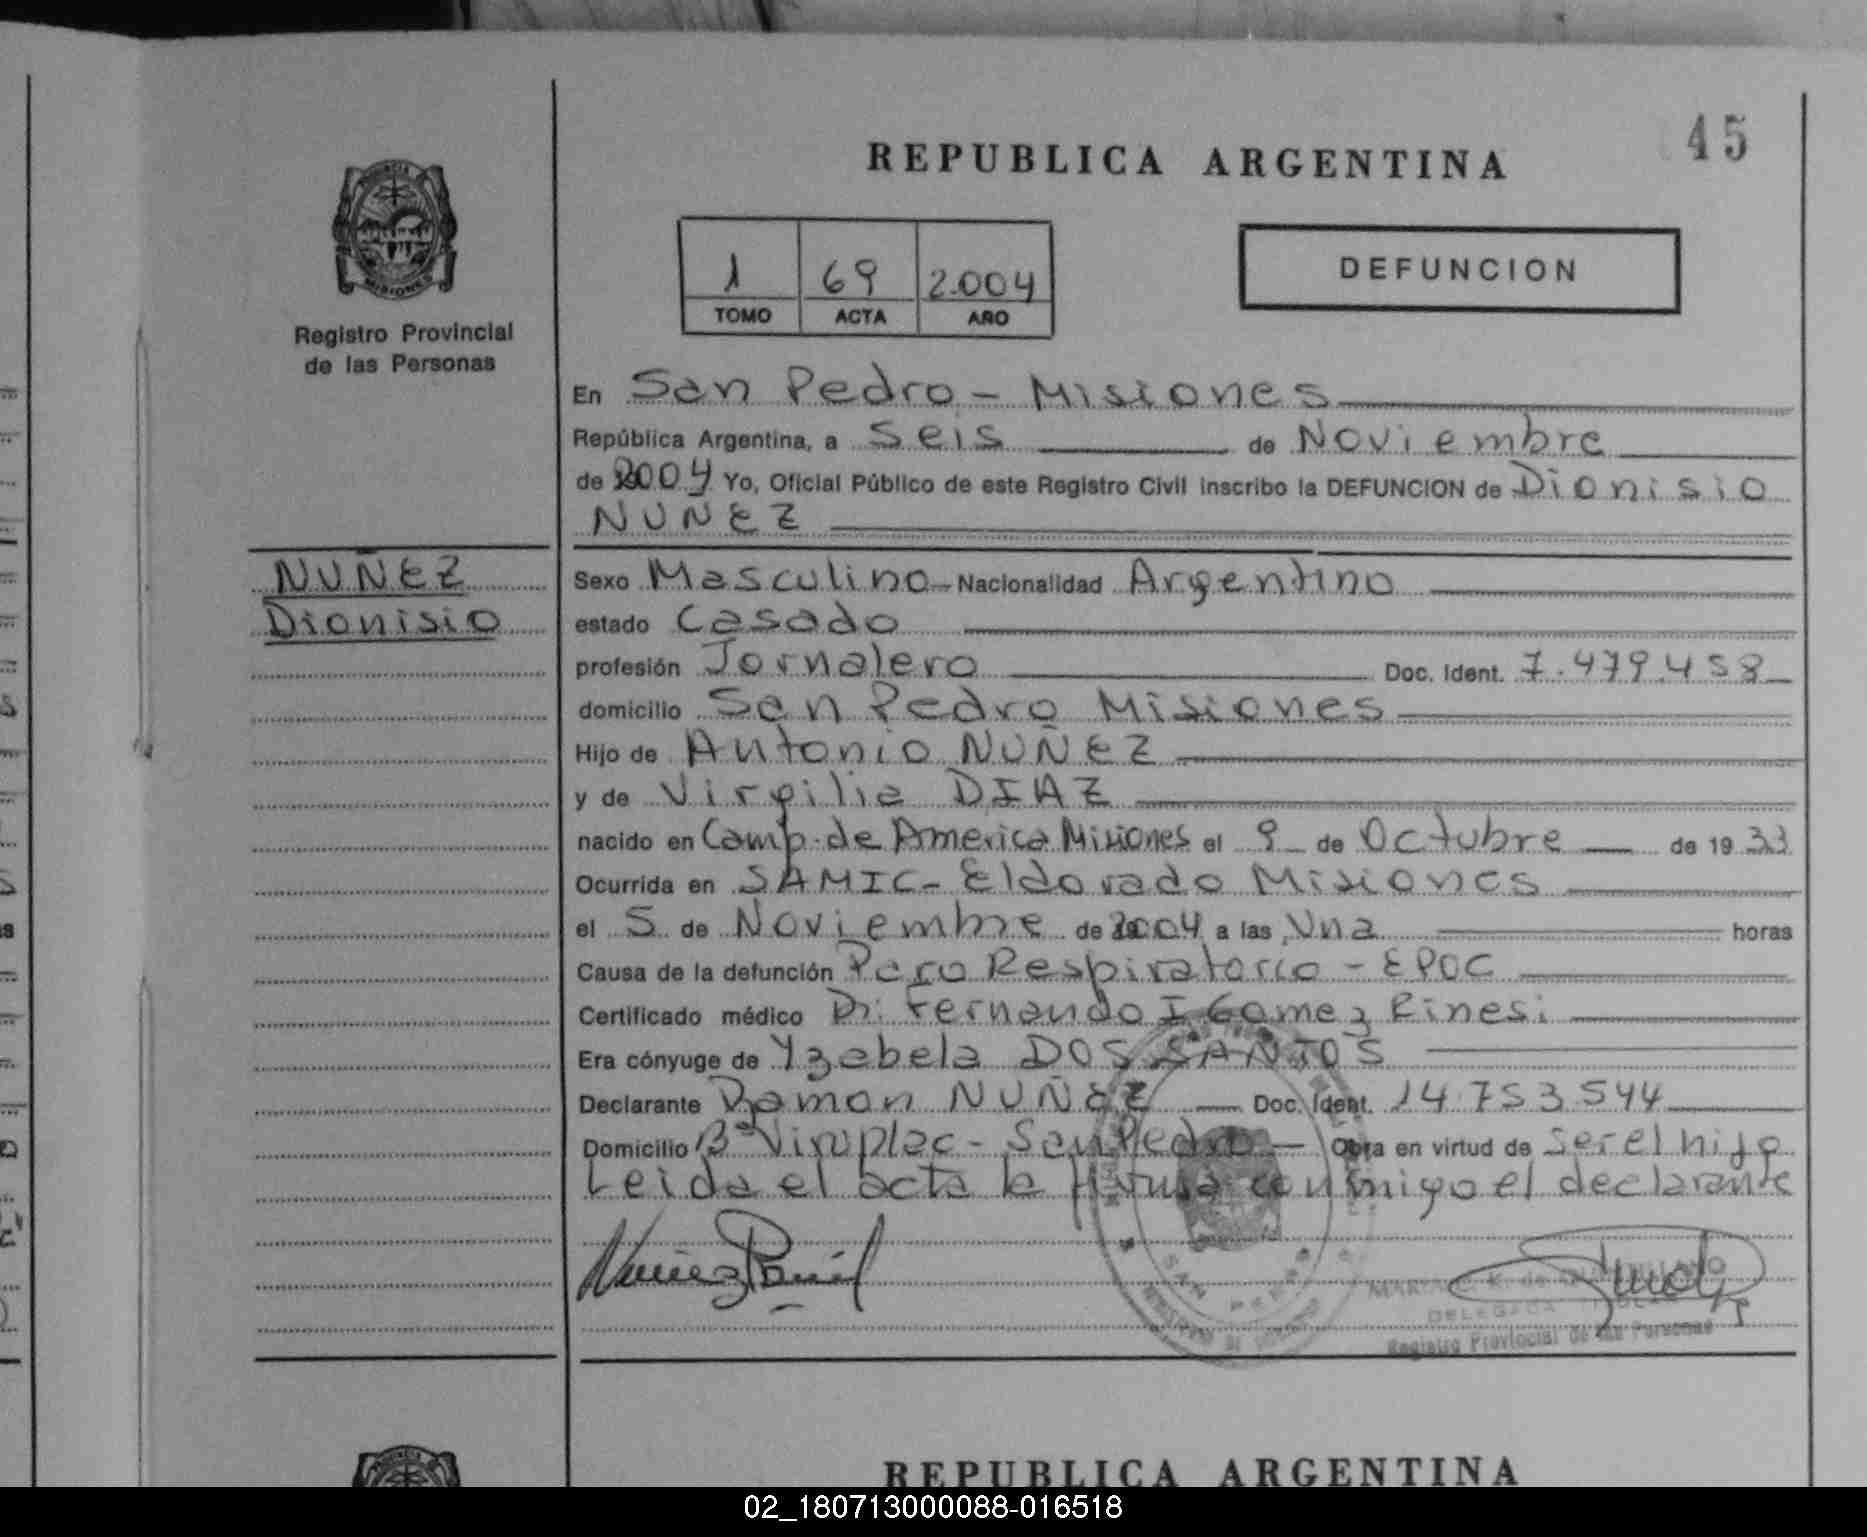 45
REPUBLICA ARGENTINA
1 69 2.004
TOMO ACTA AÑO
DEFUNCION
MISIONES
Registro Provincial
de las Personas
En San Pedro - Misiones
República Argentina, a Seis de Noviembre
de 2004 Yo, Oficial Público de este Registro Civil inscribo la DEFUNCION de Dionisio
NUÑEZ
NUÑEZ
Dionisio
Sexo Masculino Nacionalidad Argentino
estado Casado
profesión Jornalero Doc. Ident. 7.479.458
domicilio San Pedro Misiones
Hijo de Antonio NUÑEZ
y de Virgilia DIAZ
nacido en Camp. de America Misiones el 9 de Octubre de 19 33
Ocurrida en SAMIC - Eldorado Misiones
el 5 de Noviembre de 2004 a las Una horas
Causa de la defunción Paro Respiratorio - EPOC
Certificado médico Dr. Fernando I Gomez Rinesi
Era cónyuge de Yzabela DOS SANTOS
Declarante Ramon NUÑEZ Doc. Ident. 14.753.544
Domicilio B° Viruplac - San Pedro Obra en virtud de ser el hijo
Leida el acta la firma conmigo el declarante
Nuñez
SAN PEDRO
DELEGADA TITULAR
Registro Provincial de las Personas
REPUBLICA ARGENTINA
02_180713000088-016518